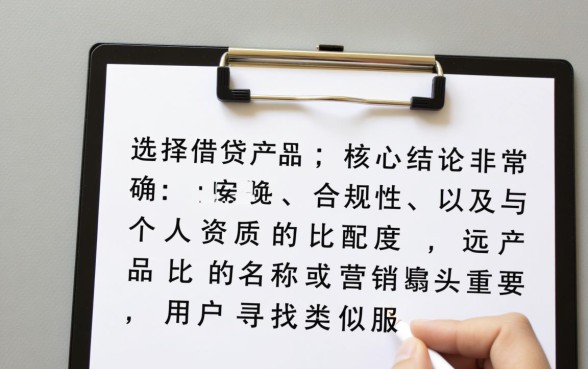 选择借贷产品；核心结论非常
确：、合规性、以及与
个人资质的比配度，远产
品比的名称或营销头重要
，用户寻找类似服